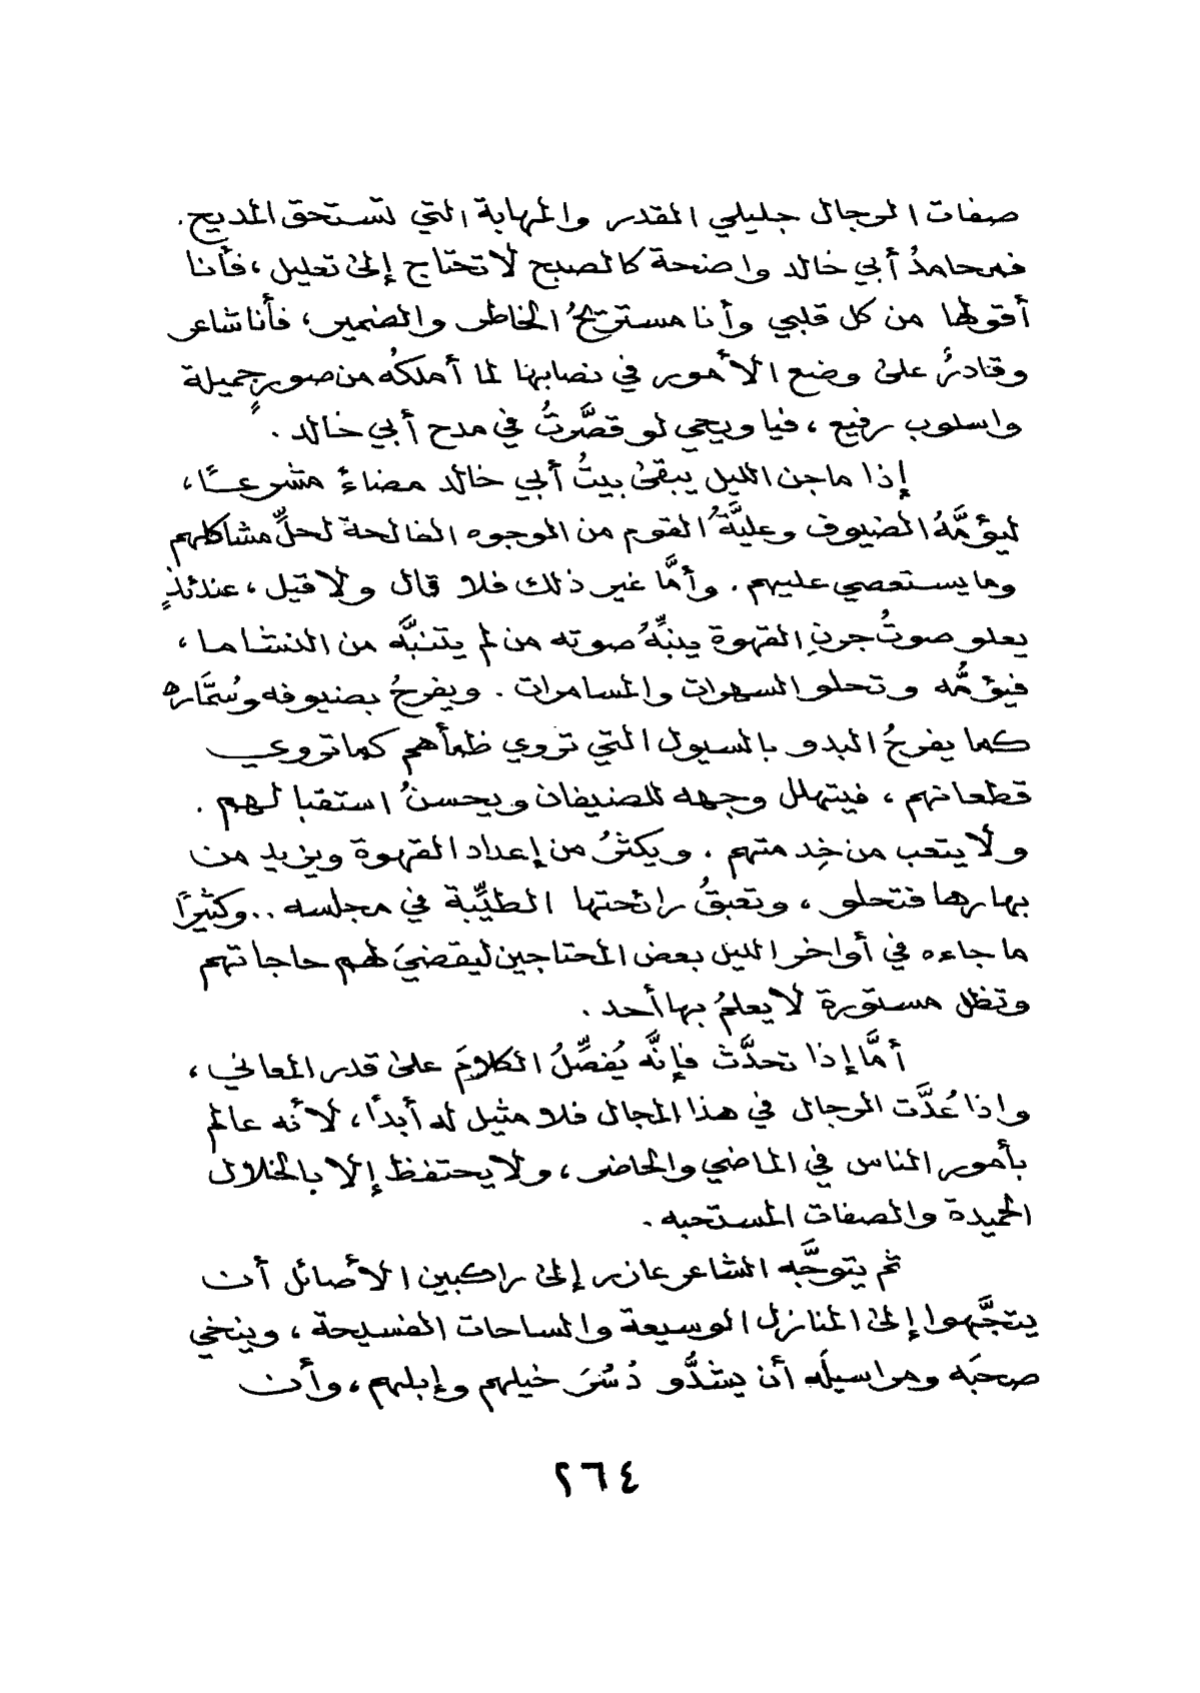 صفات الرجال جليلي القدر والمهابة التي تستحق المديح.
فمحامدُ أبي خالد واضحة كالصبح لا تحتاج إلى تعليل، فأنا
أقولها من كل قلبي وأنا مستريحُ الخاطر والضمير، فأنا شاعر
وقادرُ على وضع الأمور في نصابها لما أملكُه من صورٍ جميلة
واسلوب رفيع، فيا ويحي لو قصَّرتُ في مدح أبي خالد.
إذا ماجن الليل يبقى بيتُ أبي خالد مضاءً مشرعـًا،
ليؤمَّهُ الضيوف وعليَّةُ القوم من الوجوه الفالحة لحلِّ مشاكلهم
وما يستعصي عليهم. وأمَّا غير ذلك فلا قال ولا قيل، عندئذٍ
يعلو صوتُ جرنِ القهوة ينبِّهُ صوته من لم يتنبَّه من النشاما،
فيؤمُّه وتحلو السهرات والمسامرات. ويفرحُ بضيوفه وسُمَّاره
كما يفرحُ البدو بالسيول التي تروي ظمأهم كما تروي
قطعانهم، فيتهلل وجهه للضيفان ويحسنُ استقبالهم.
ولا يتعب من خِدمتهم. ويكثرُ من إعداد القهوة ويزيد من
بهارها فتحلو، وتعبقُ رائحتها الطيِّبة في مجلسه.. وكثيرًا
ما جاءه في أواخر الليل بعض المحتاجين ليقضيَ لهم حاجاتهم
وتظل مستورة لا يعلمُ بها أحد.
أمَّا إذا تحدَّث فإنَّه يُفصِّلُ الكلامَ على قدر المعاني،
واذا عُدَّت الرجال في هذا المجال فلا مثيل له أبدًا، لأنه عالم
بأمور الناس في الماضي والحاضر، ولا يحتفظ إلا بالخلال
الحميدة والصفات المستحبه.
ثم يتوجَّبه الشاعر عازر إلى راكبين الأصائل أن
يتجَّهوا إلى المنازل الوسيعة والساحات الفسيحة، وينخي
صحبَه ومراسيلَه أن يشدُّو دُشُرَ خيلهم وإبلهم، وأن
٢٦٤